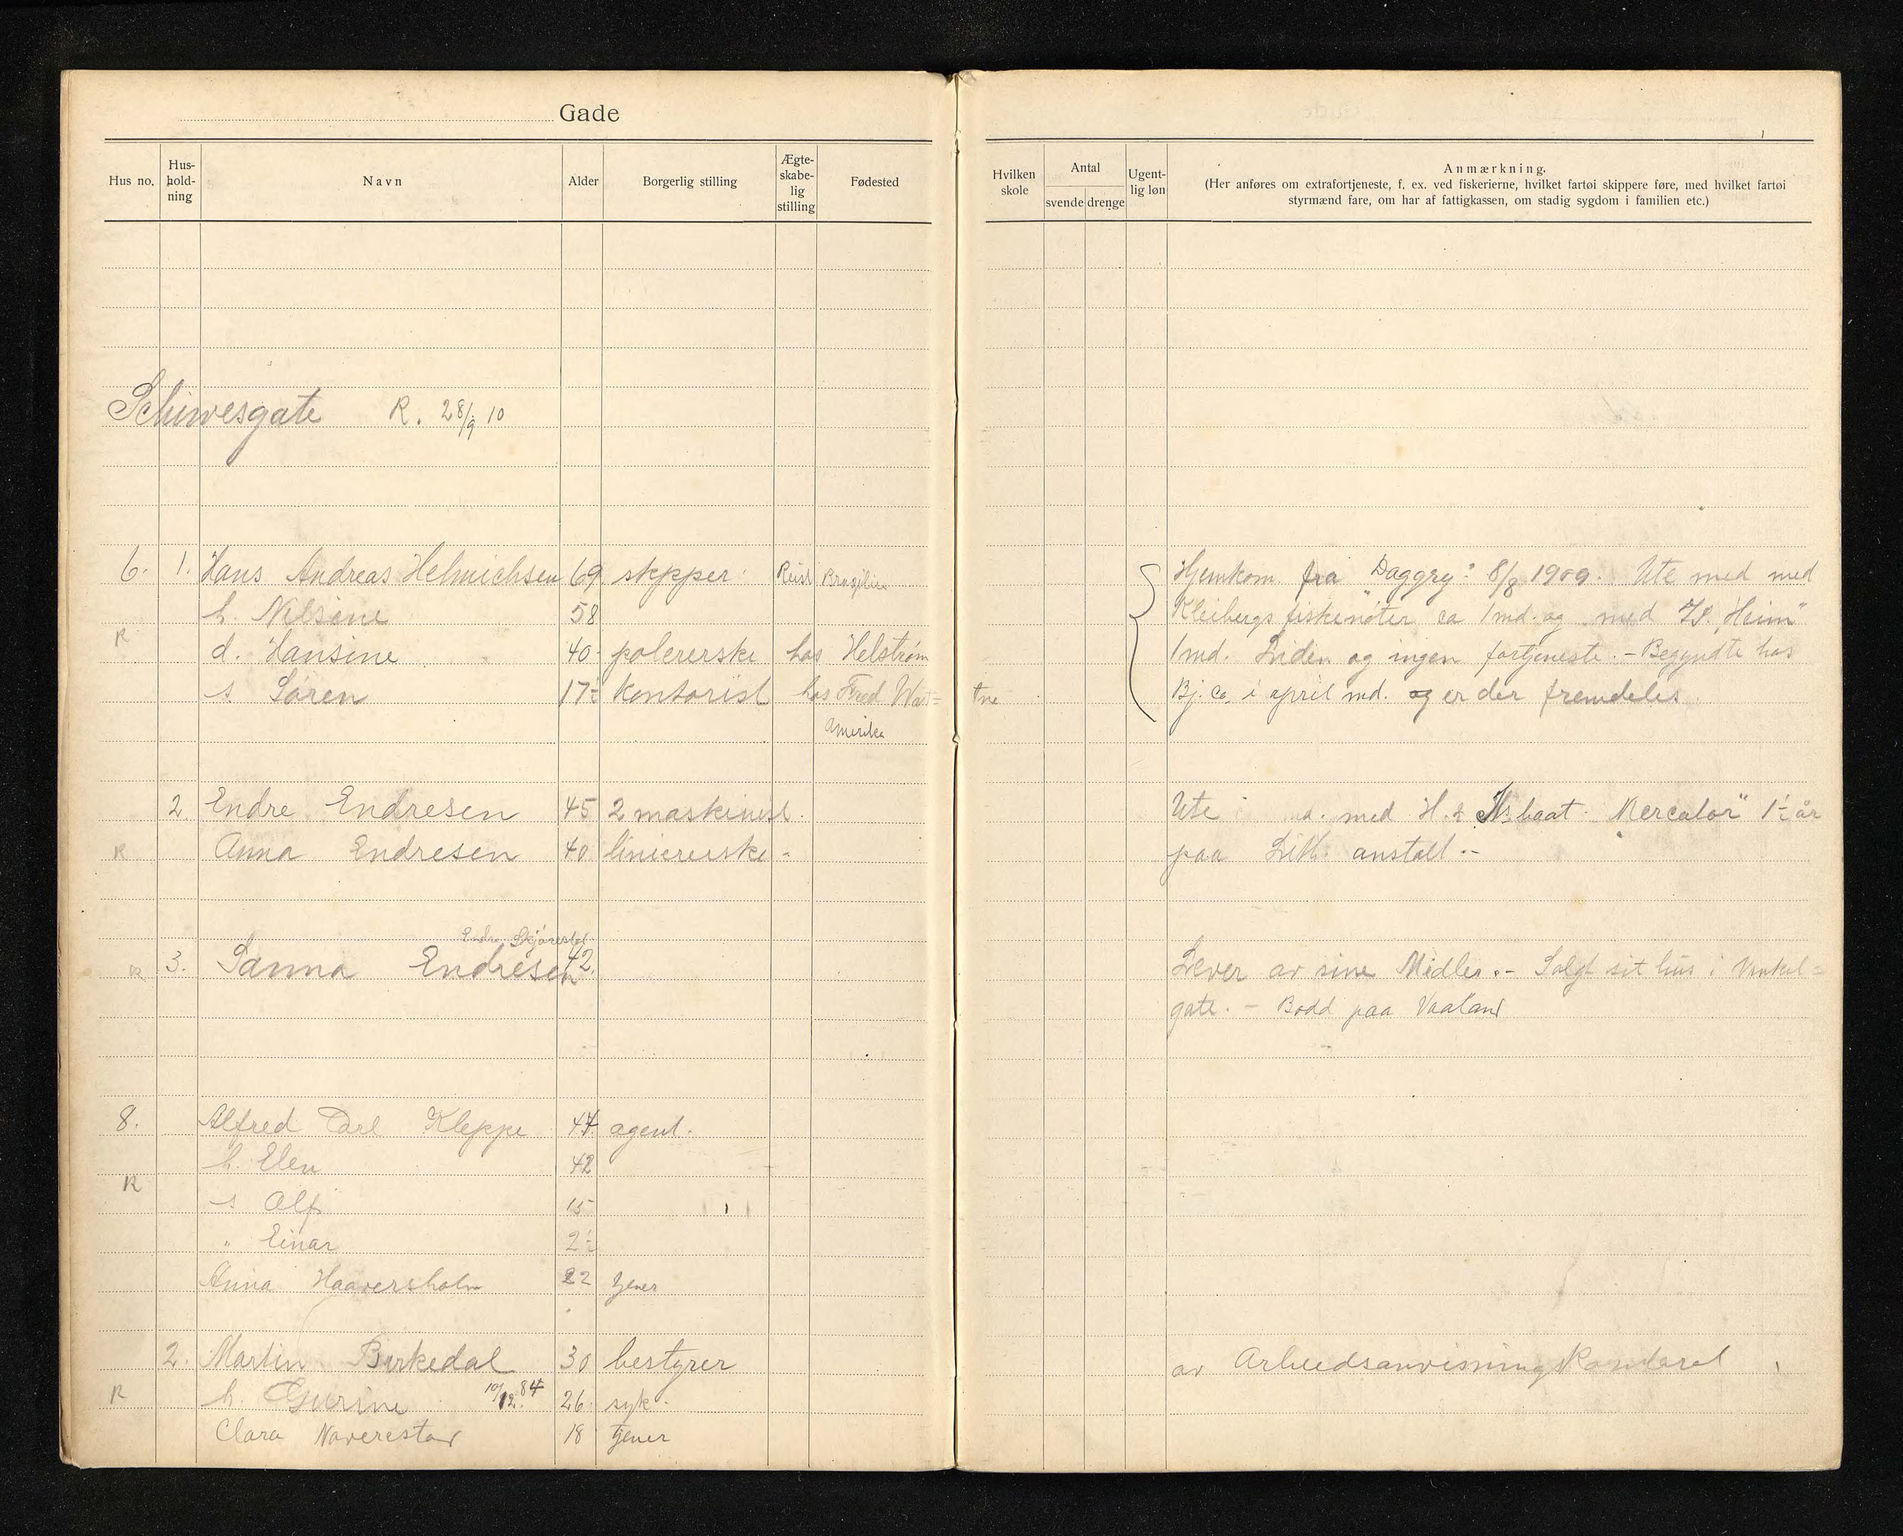 Gade
Hus no. Hus-hold-ning Navn Alder Borgerlig stilling Ægte-skabe-lig stilling Fødested
Hvilken skole Antal svende drenge Ugent-lig løn Anmærkning.
(Her anføres om extrafortjeneste, f. ex. ved fiskerierne, hvilket fartøi skippere føre, med hvilket fartøi
styrmænd fare, om har af fattigkassen, om stadig sygdom i familien etc.)
Schiwesgate R. 28/9 10
6. 1. Hans Andreas Helmichsen 69 skipper Reist Brasilien Hjemkom fra "Daggry" 8/8 1909. Ute med med
h. Nilsine 58 Kleibergs fiskenøter ca 1 md. og med "Heim"
R
d. Hansine 40 polererske hos Helstrøm 1 md. Liden og ingen fortjeneste. - Begyndte hos
s Søren 17½ kontorist hos Fred Wat= tne Bj. Co. i april md. og er der fremdeles
Amerika
2 Endre Endresen 45 2 maskinist. Ute med H. & baat "Mercator" 1½ år
R Anna Endresen 40 liniererske - paa Lith. anstalt -
Endre
R 3. Sanna Endresen 42. Lever av sine Midler. - Solgt sit hus i Vinkel=
gate. - Bodd paa Vaaland
8. Alfred Carl Kleppe 44 agent.
h. Elen 42
R
s Alf 15
" Einar 2½
Anna Haaversholm 22 tjener
2. Martin Birkedal 30 bestyrer av Arbeidsanvisningskontoret
R h. Gurine 10/12.84 26 syk.
Clara Naverestad 18 tjener